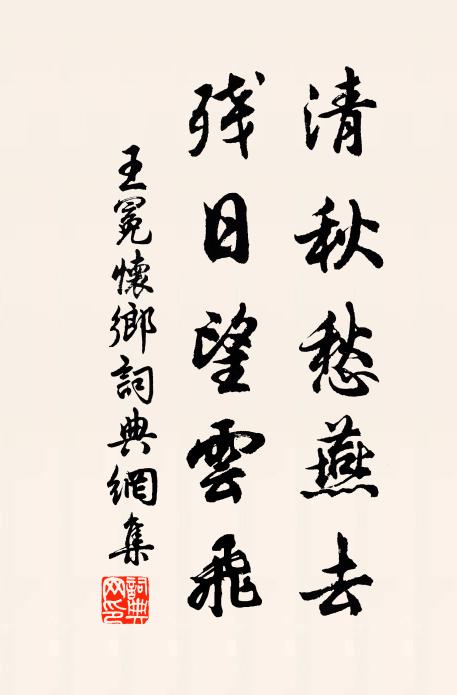 清秋愁燕去
残日望雲飛
王冕懷鄉詞典網集
詞典網印